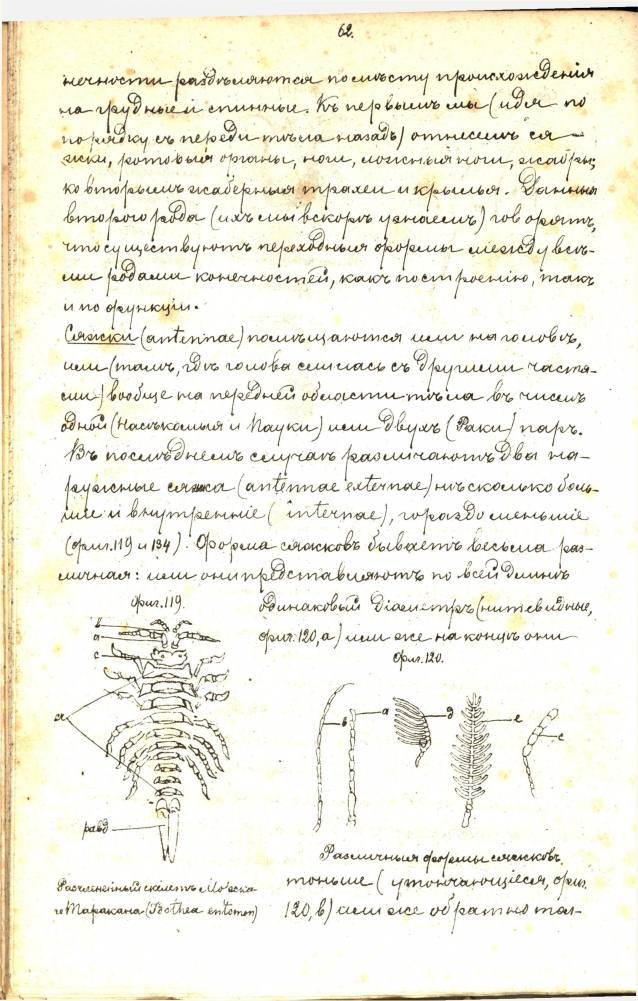 62.
нечности раздѣляются по мѣсту происхожденія
на грудные и спинные. Къ первымъ мы (идя по
порядку съ переди тѣла назадъ) отнесемъ ся-
жки, ротовыя органы, ноги, ложныя ноги, жабры;
ко вторымъ жаберныя трахеи и крылья. Данныя
второго рода (ихъ мы вскорѣ узнаемъ) говорятъ,
что существуютъ переходныя формы между всѣ-
ми родами конечностей, какъ по строенію, такъ
и по функціи.
Сяжки (antennae) помѣщаются или на головѣ,
или (тамъ, гдѣ голова слилась съ другими частя-
ми) вообще на передней области тѣла въ числѣ
одной (Насѣкомыя и Пауки) или двухъ (Раки) паръ.
Въ послѣднемъ случаѣ различаютъ два на-
ружные сяжка (antennae externae) нѣсколько боль-
шіе и внутренніе (internae), гораздо меньшіе
(фиг. 119 и 134). Форма сяжковъ бываетъ весьма раз-
личная: или они представляютъ по всей длинѣ
фиг. 119.
одинаковый діаметръ (нитевидные,
фиг. 120, а) или же на концѣ они
фиг. 120.
b
a
c
d
равд
b
a
д
e
c
Различныя формы сяжковъ.
Расчлененный скелетъ Морска-
го Таракана (Idothea entomon)
тоньше (утончающіеся, фиг.
120, b) или же обратно тол-